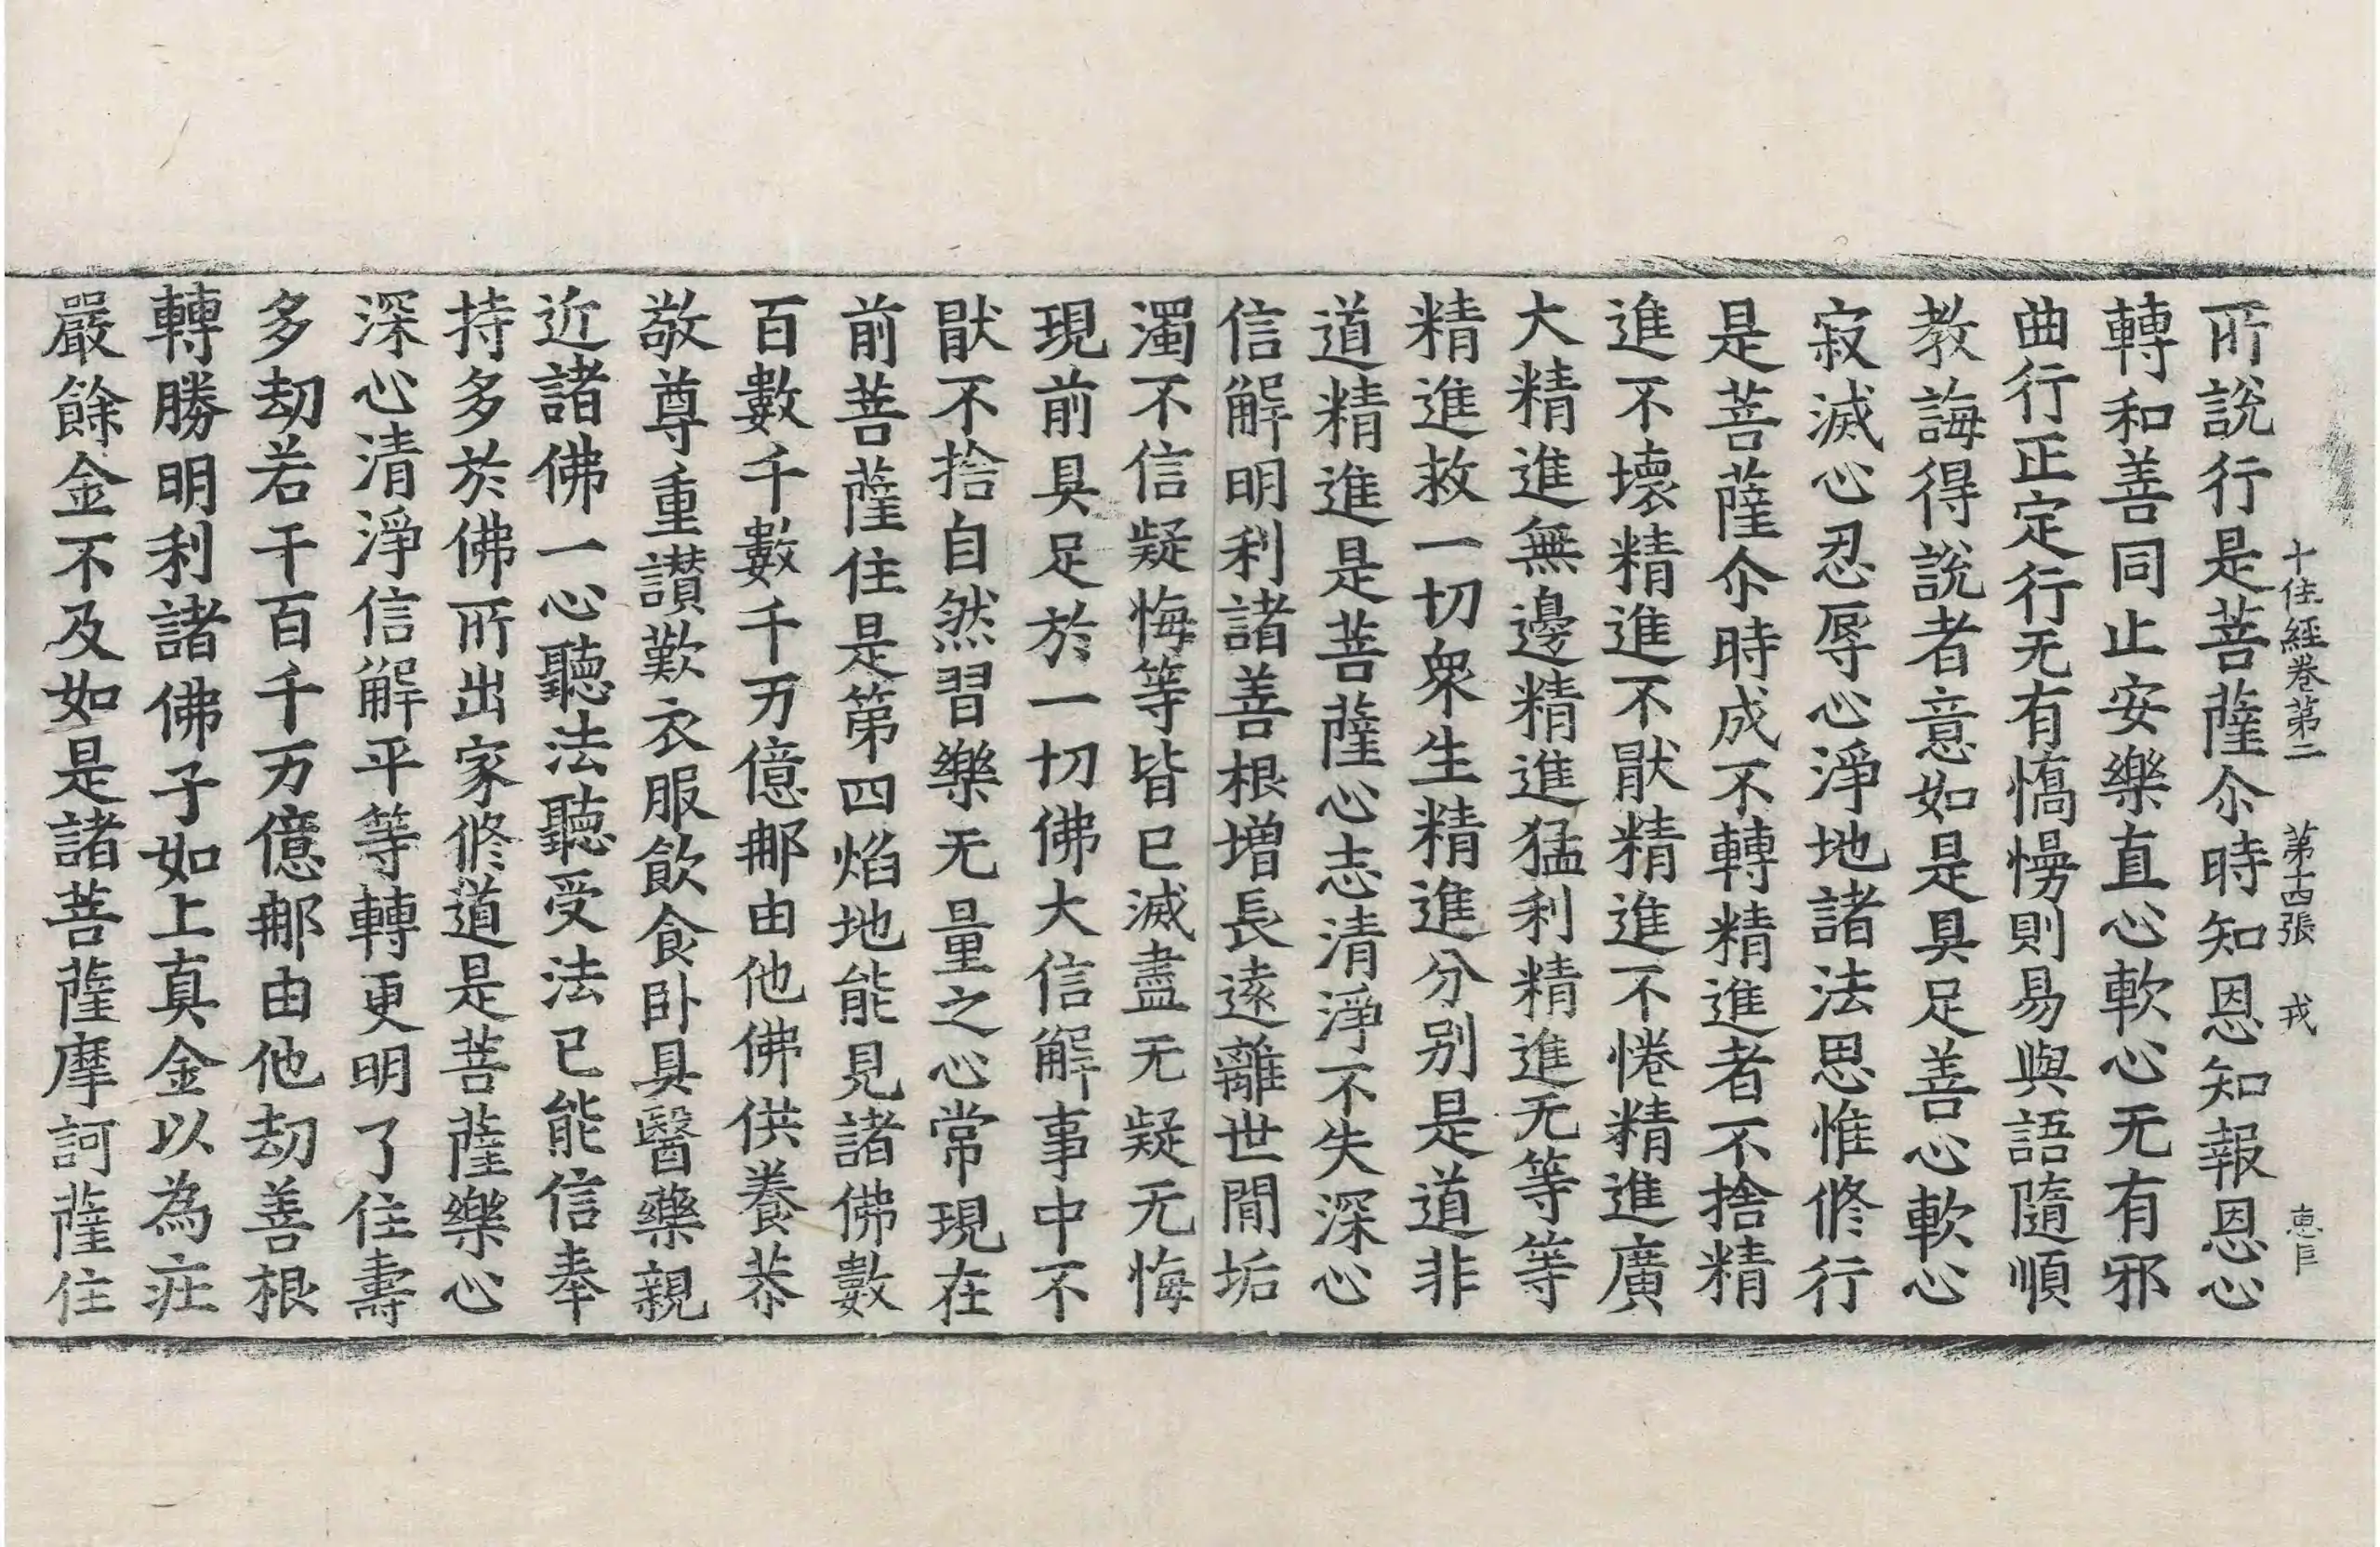 十住經卷第二 第十四張 戎 惠臣
所說行是菩薩尒時知恩知報恩心
轉和善同止安樂直心軟心无有邪
曲行正定行无有憍慢則易與語隨順
教誨得說者意如是具足善心軟心
寂滅心忍辱心淨地諸法思惟修行
是菩薩尒時成不轉精進者不捨精
進不壞精進不猒精進不惓精進廣
大精進無邊精進猛利精進无等等
精進救一切眾生精進分别是道非
道精進是菩薩心志清淨不失深心
信解明利諸善根增長遠離世閒垢
濁不信疑悔等皆已滅盡无疑无悔
現前具足於一切佛大信解事中不
猒不捨自然習樂无量之心常現在
前菩薩住是第四焰地能見諸佛數
百數千數千万億那由他佛供養恭
敬尊重讃歎衣服飲食卧具醫藥親
近諸佛一心聽法聽受法已能信奉
持多於佛所出家修道是菩薩樂心
深心清淨信解平等轉更明了住壽
多劫若干百千万億那由他劫善根
轉勝明利諸佛子如上真金以為疘
嚴餘金不及如是諸菩薩摩訶薩住